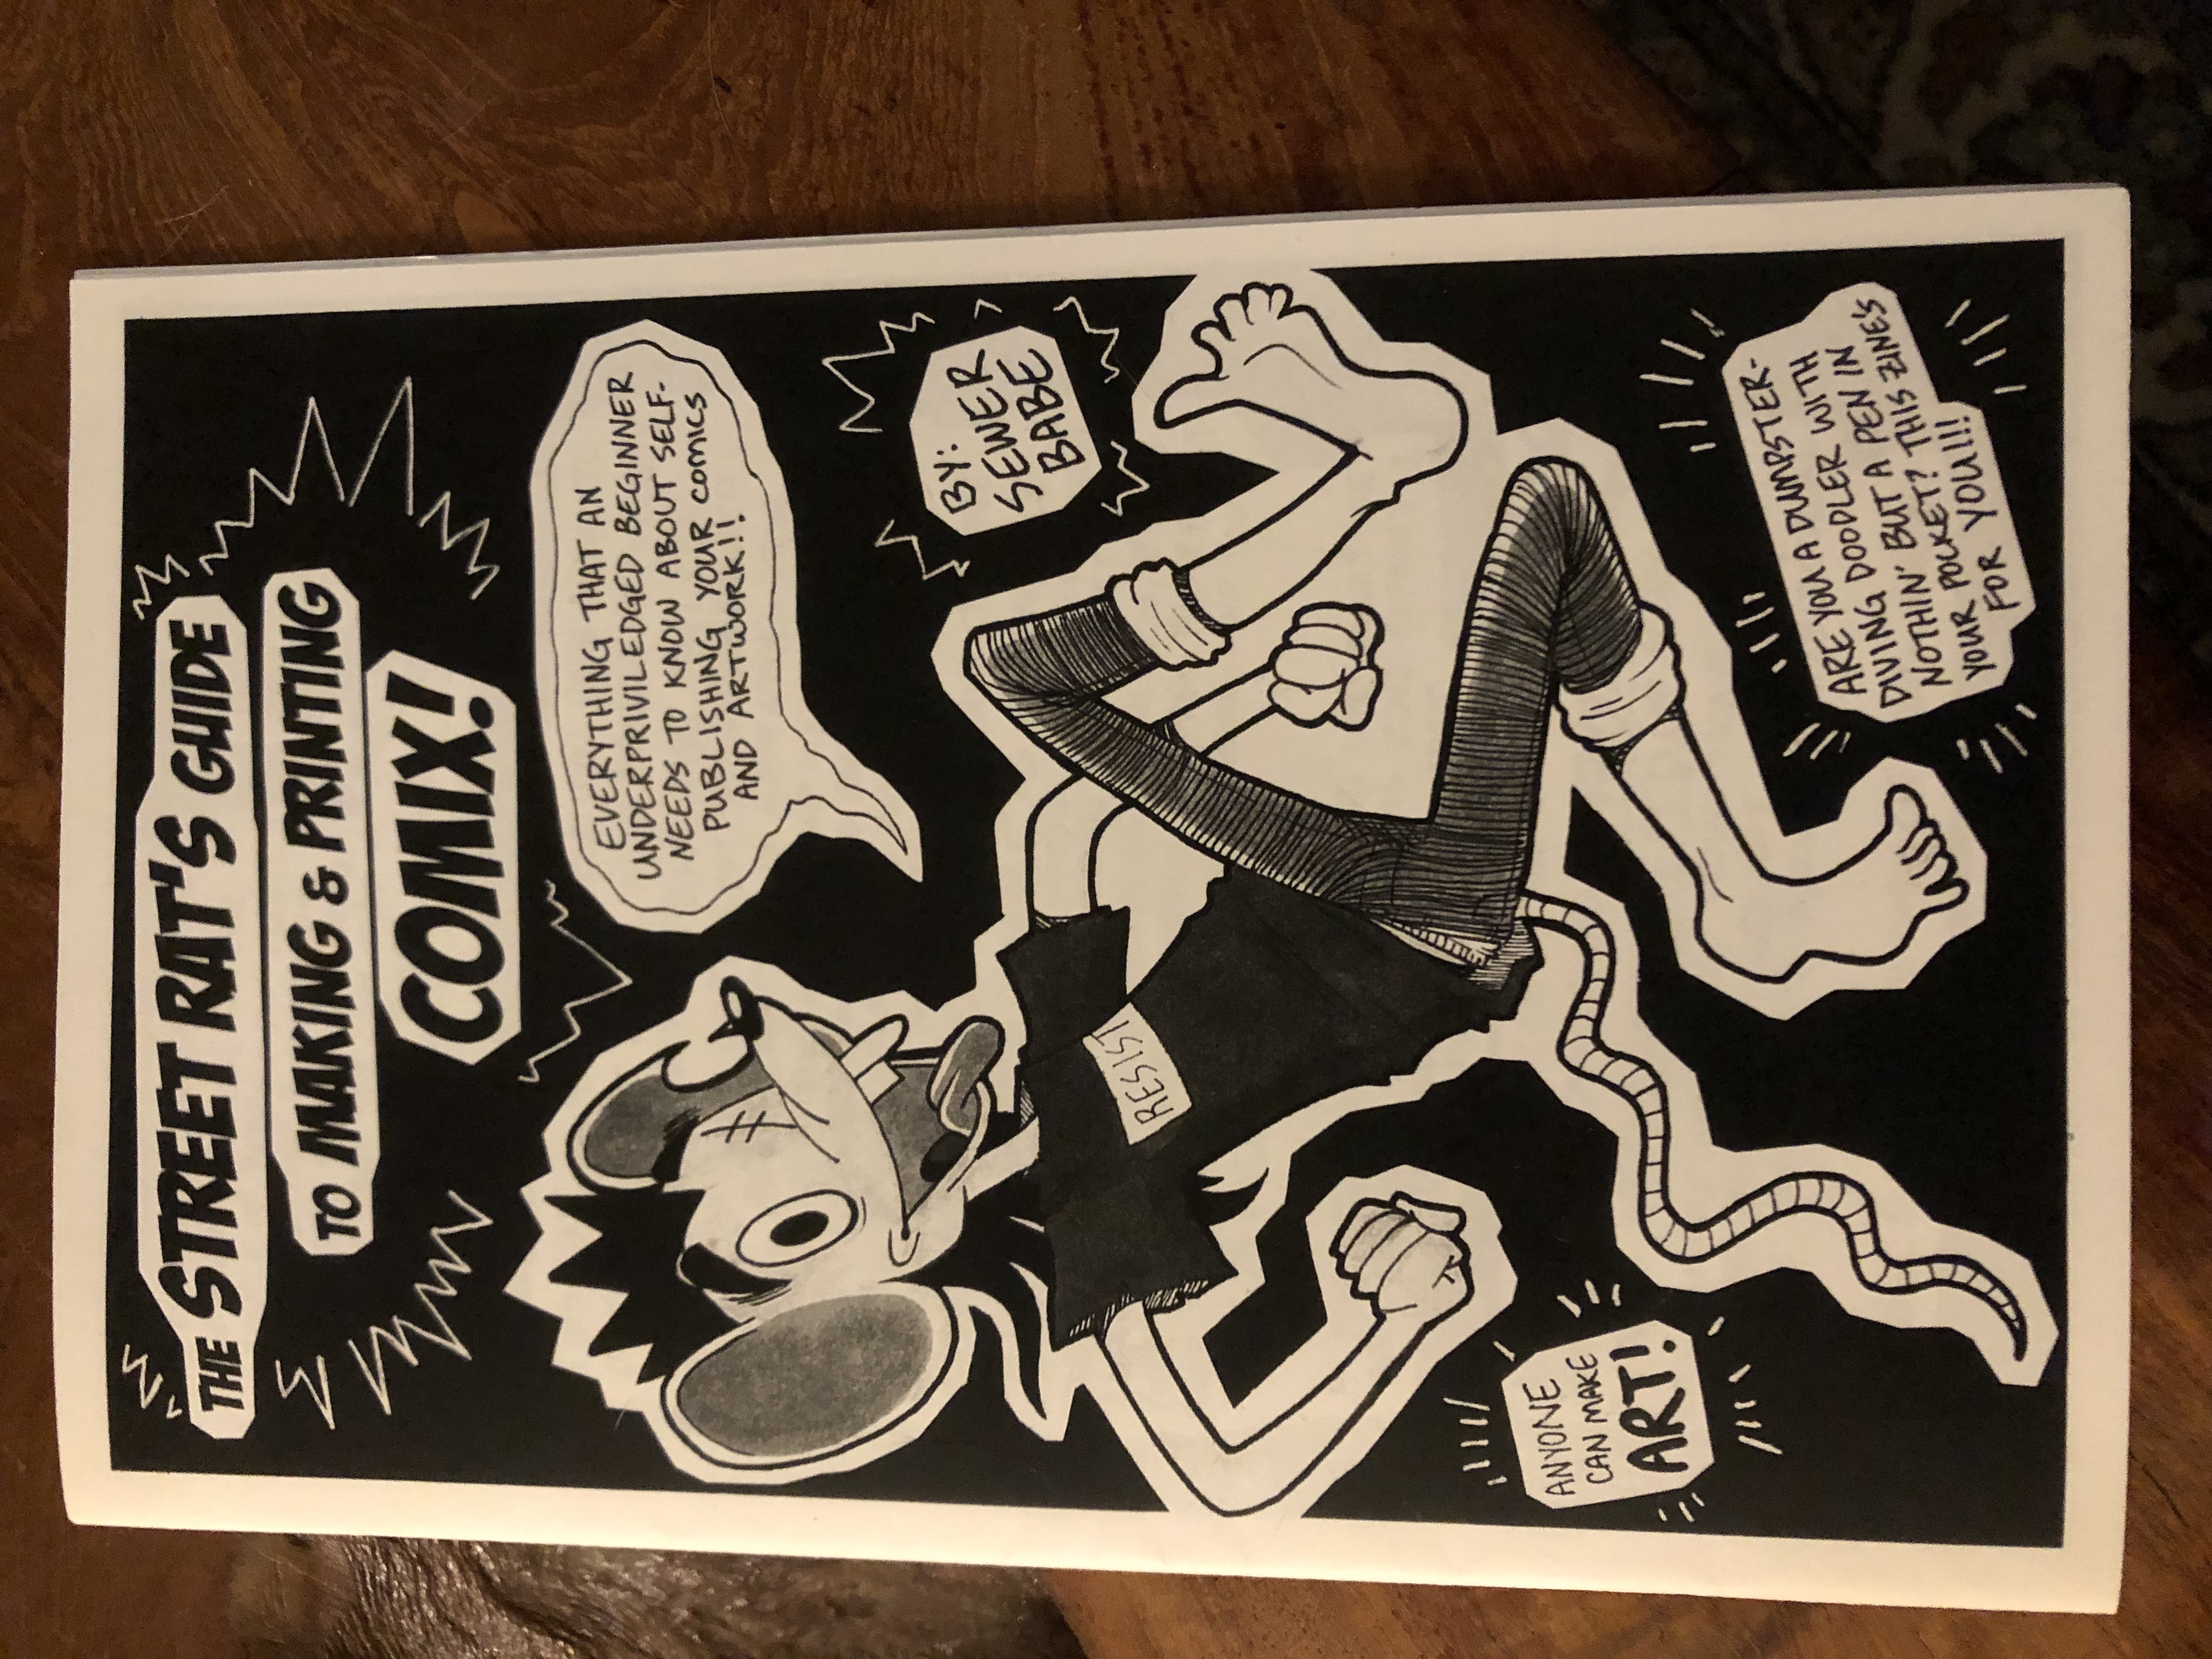 THE STREET RAT'S GUIDE
TO MAKING & PRINTING
COMIX!
EVERYTHING THAT AN
UNDERPRIVILEDGED BEGINNER
NEEDS TO KNOW ABOUT SELF-
PUBLISHING YOUR comics
AND ARTWORK!!
BY:
SEWER
BABE
RESIST
ANYONE
CAN MAKE
ART!
ARE YOU A DUMPSTER-
DIVING DOODLER WITH
NOTHIN' BUT A PEN IN
YOUR POCKET? THIS ZINE'S
FOR YOU!!!